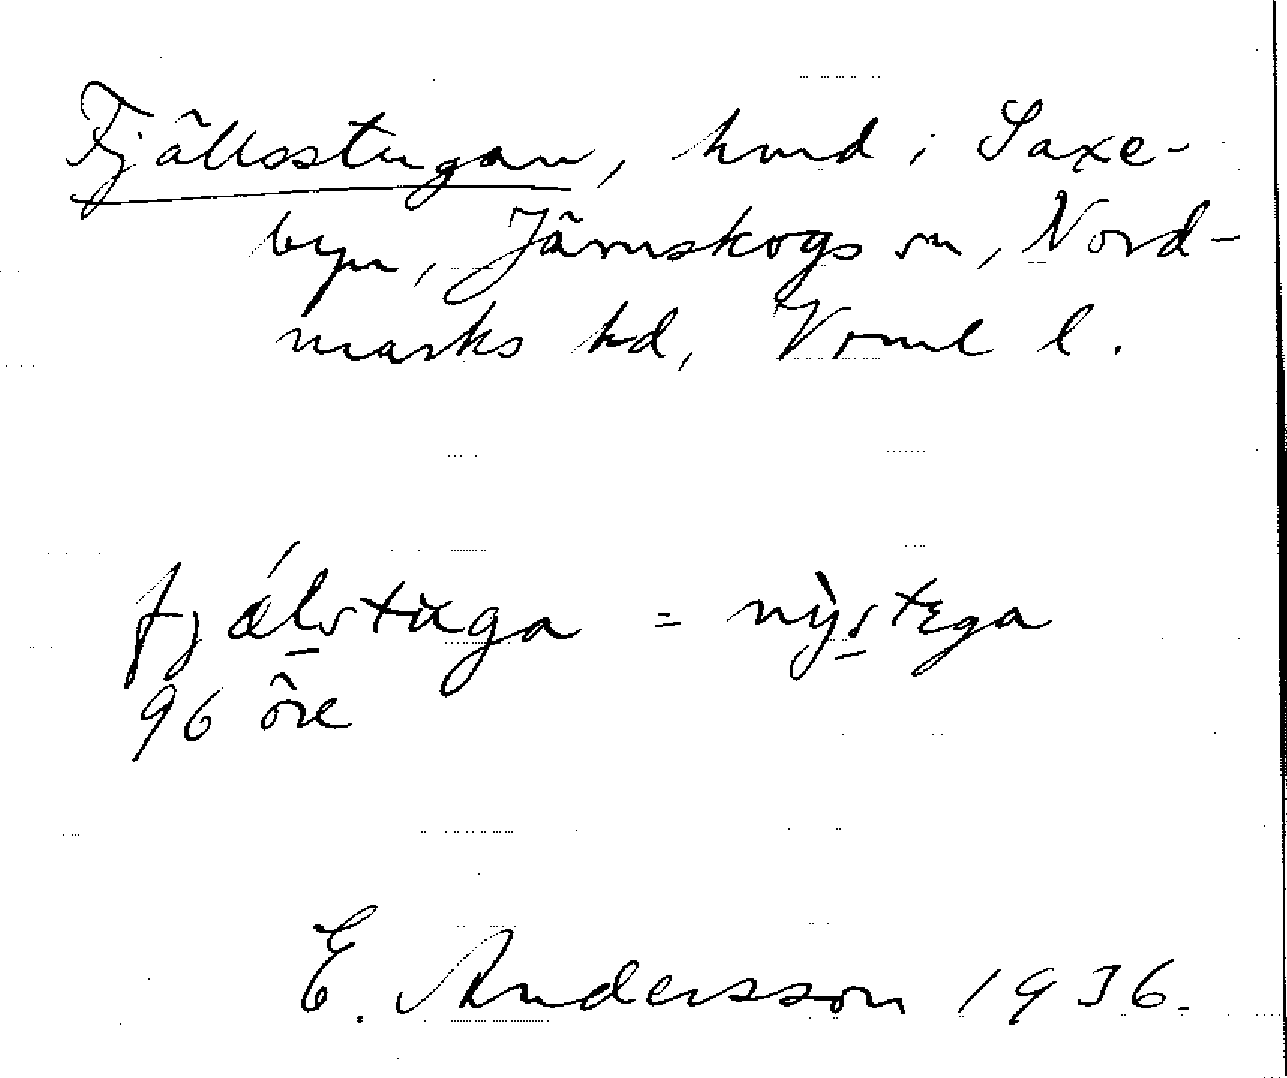 Fjällsstugan, hmd i Saxe-
byn, Järnskogs sn, Nord-
marks hd, Vrml l.
fjálstuga = nỳstega
96 öre
E. Andersson 1936.